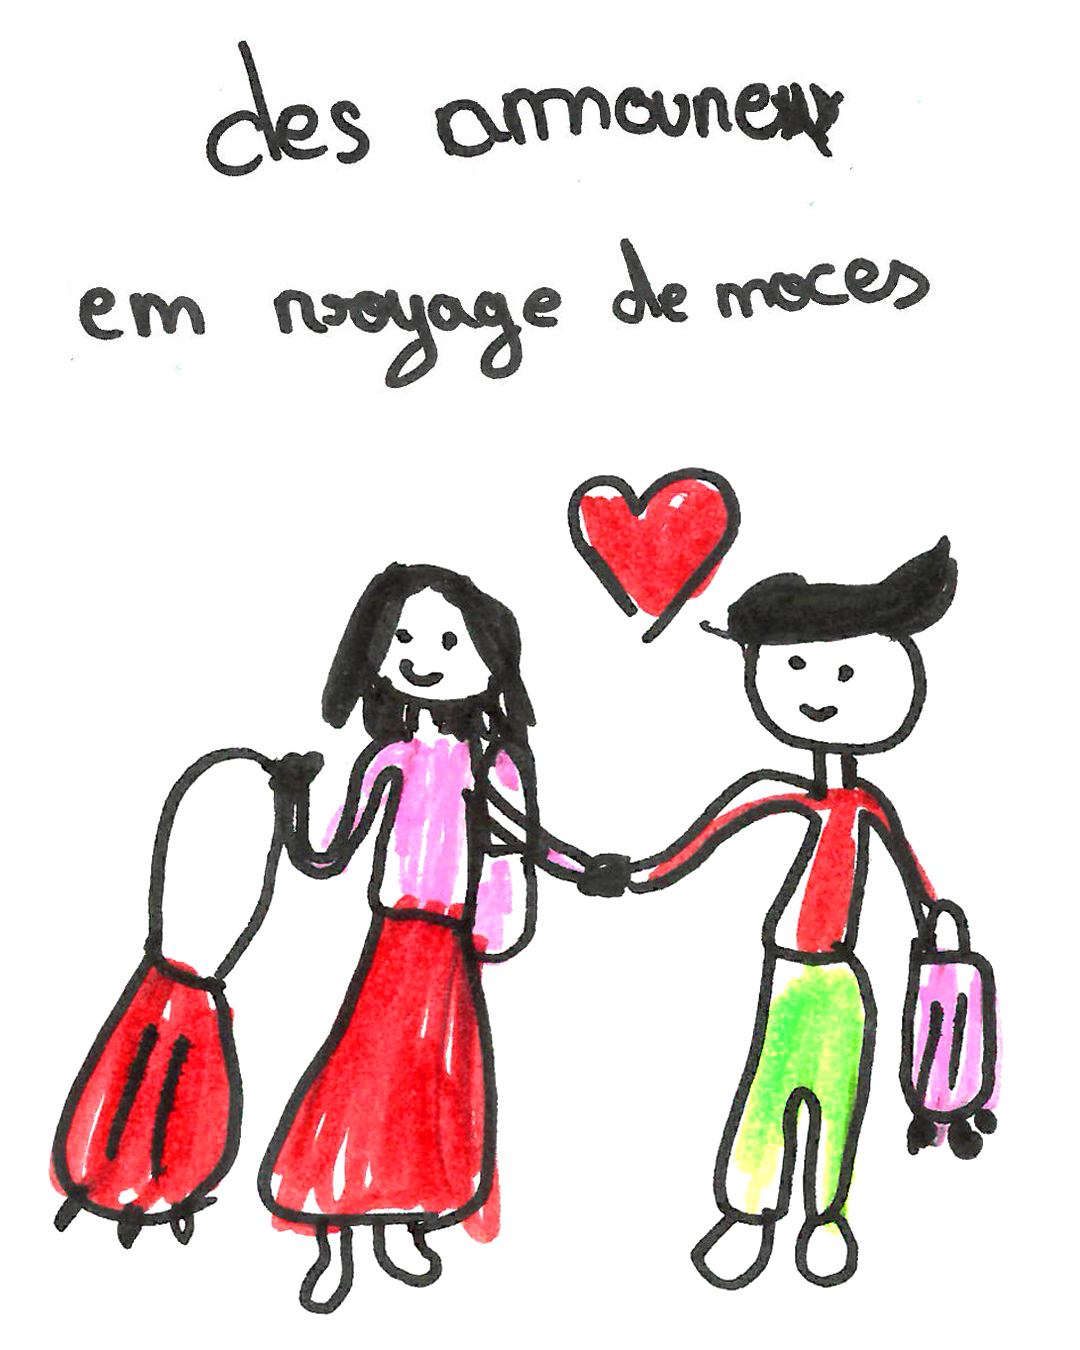 des amoureux
en voyage de noces